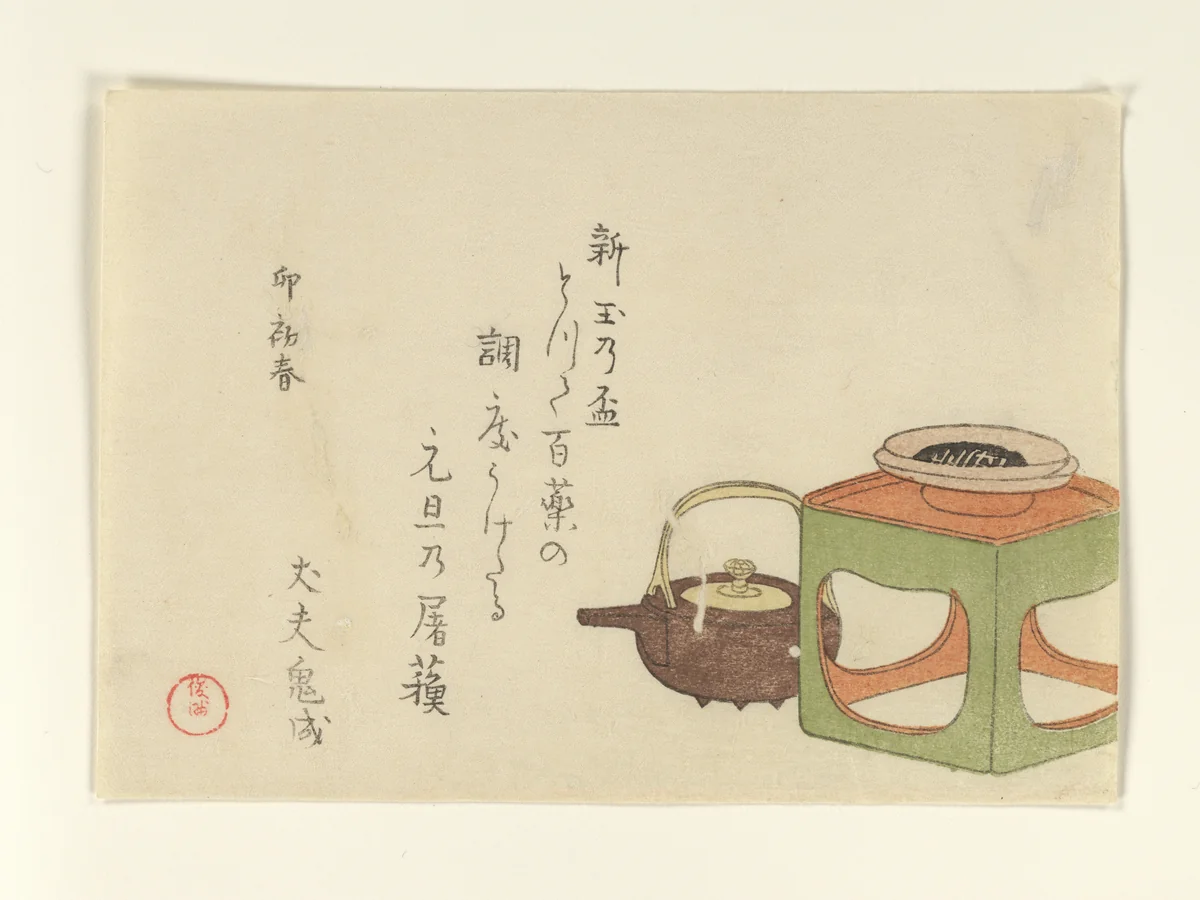 新玉乃盃
とりつく百薬の
調度うけたる
元旦乃屠蘓
卯初春
大夫鬼成